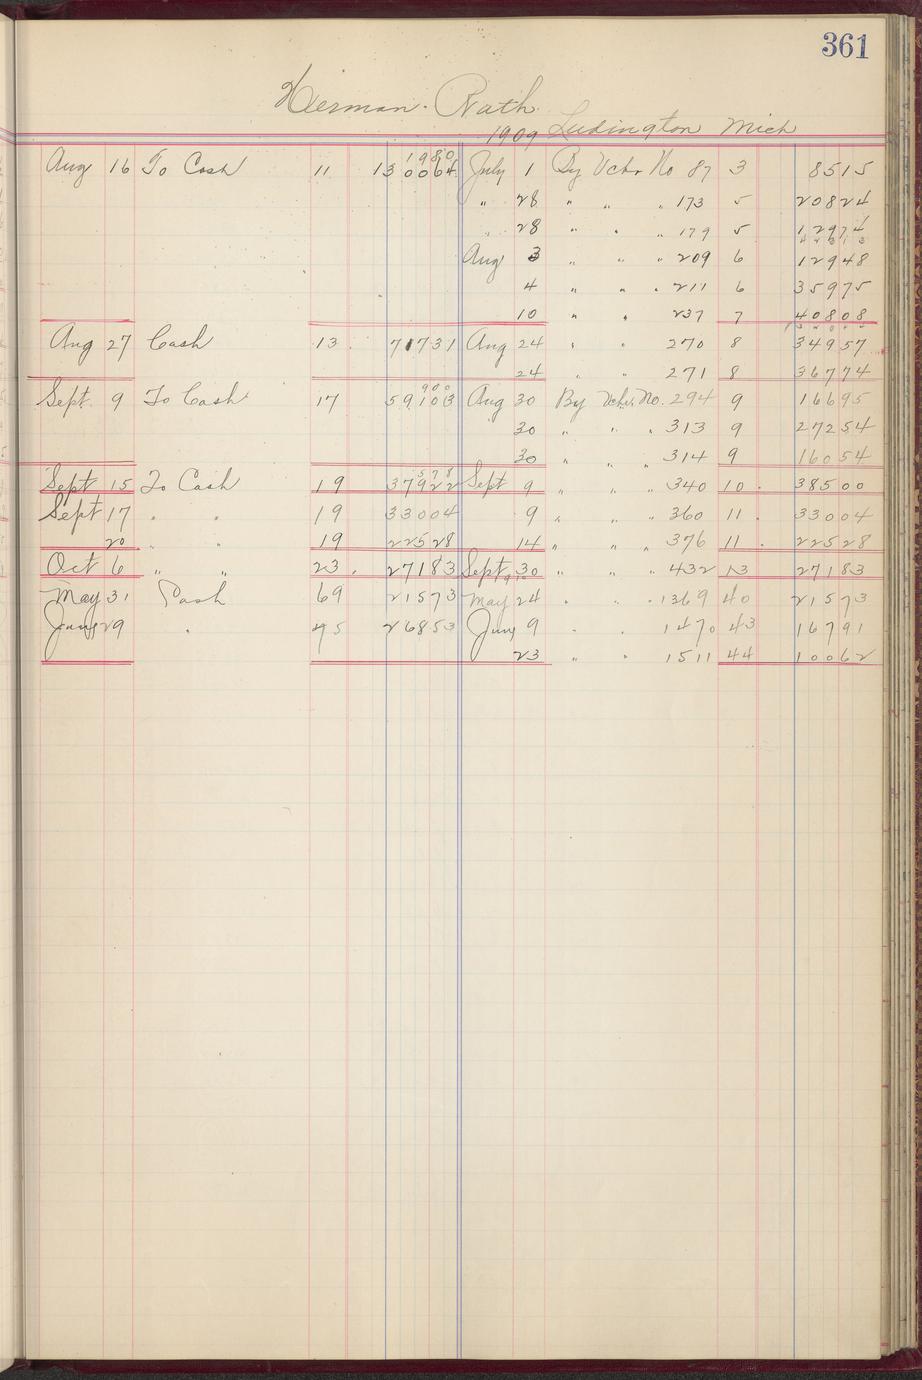 361
Herman Rath
1909 Ludington Mich
1980
Aug 16 To Cash 11 13 0064 July 1 By Vchr No 87 3 8515
" 28 " " " 173 5 20824
" 28 " " " 179 5 12974
Aug 3 " " " 209 6 12948
4 " " " 211 6 35975
10 " " 237 7 40808
Aug 27 Cash 13 71731 Aug 24 " " 270 8 34957
24 " " 271 8 36774
900
Sept 9 To Cash 17 59103 Aug 30 By Vchr. No. 294 9 16695
30 " " " 313 9 27254
30 " " " 314 9 16054
578
Sept 15 To Cash 19 37922 Sept 9 " " " 340 10 38500
Sept 17 " " 19 33004 9 " " " 360 11 33004
20 " " 19 22528 14 " " " 376 11 22528
Oct 6 " " 23 27183 Sept 30 " " " 432 13 27183
May 31 Cash 69 21573 May 24 " " 1369 40 21573
June 29 " 75 26853 June 9 " " 1470 43 16791
23 " " 1511 44 10062